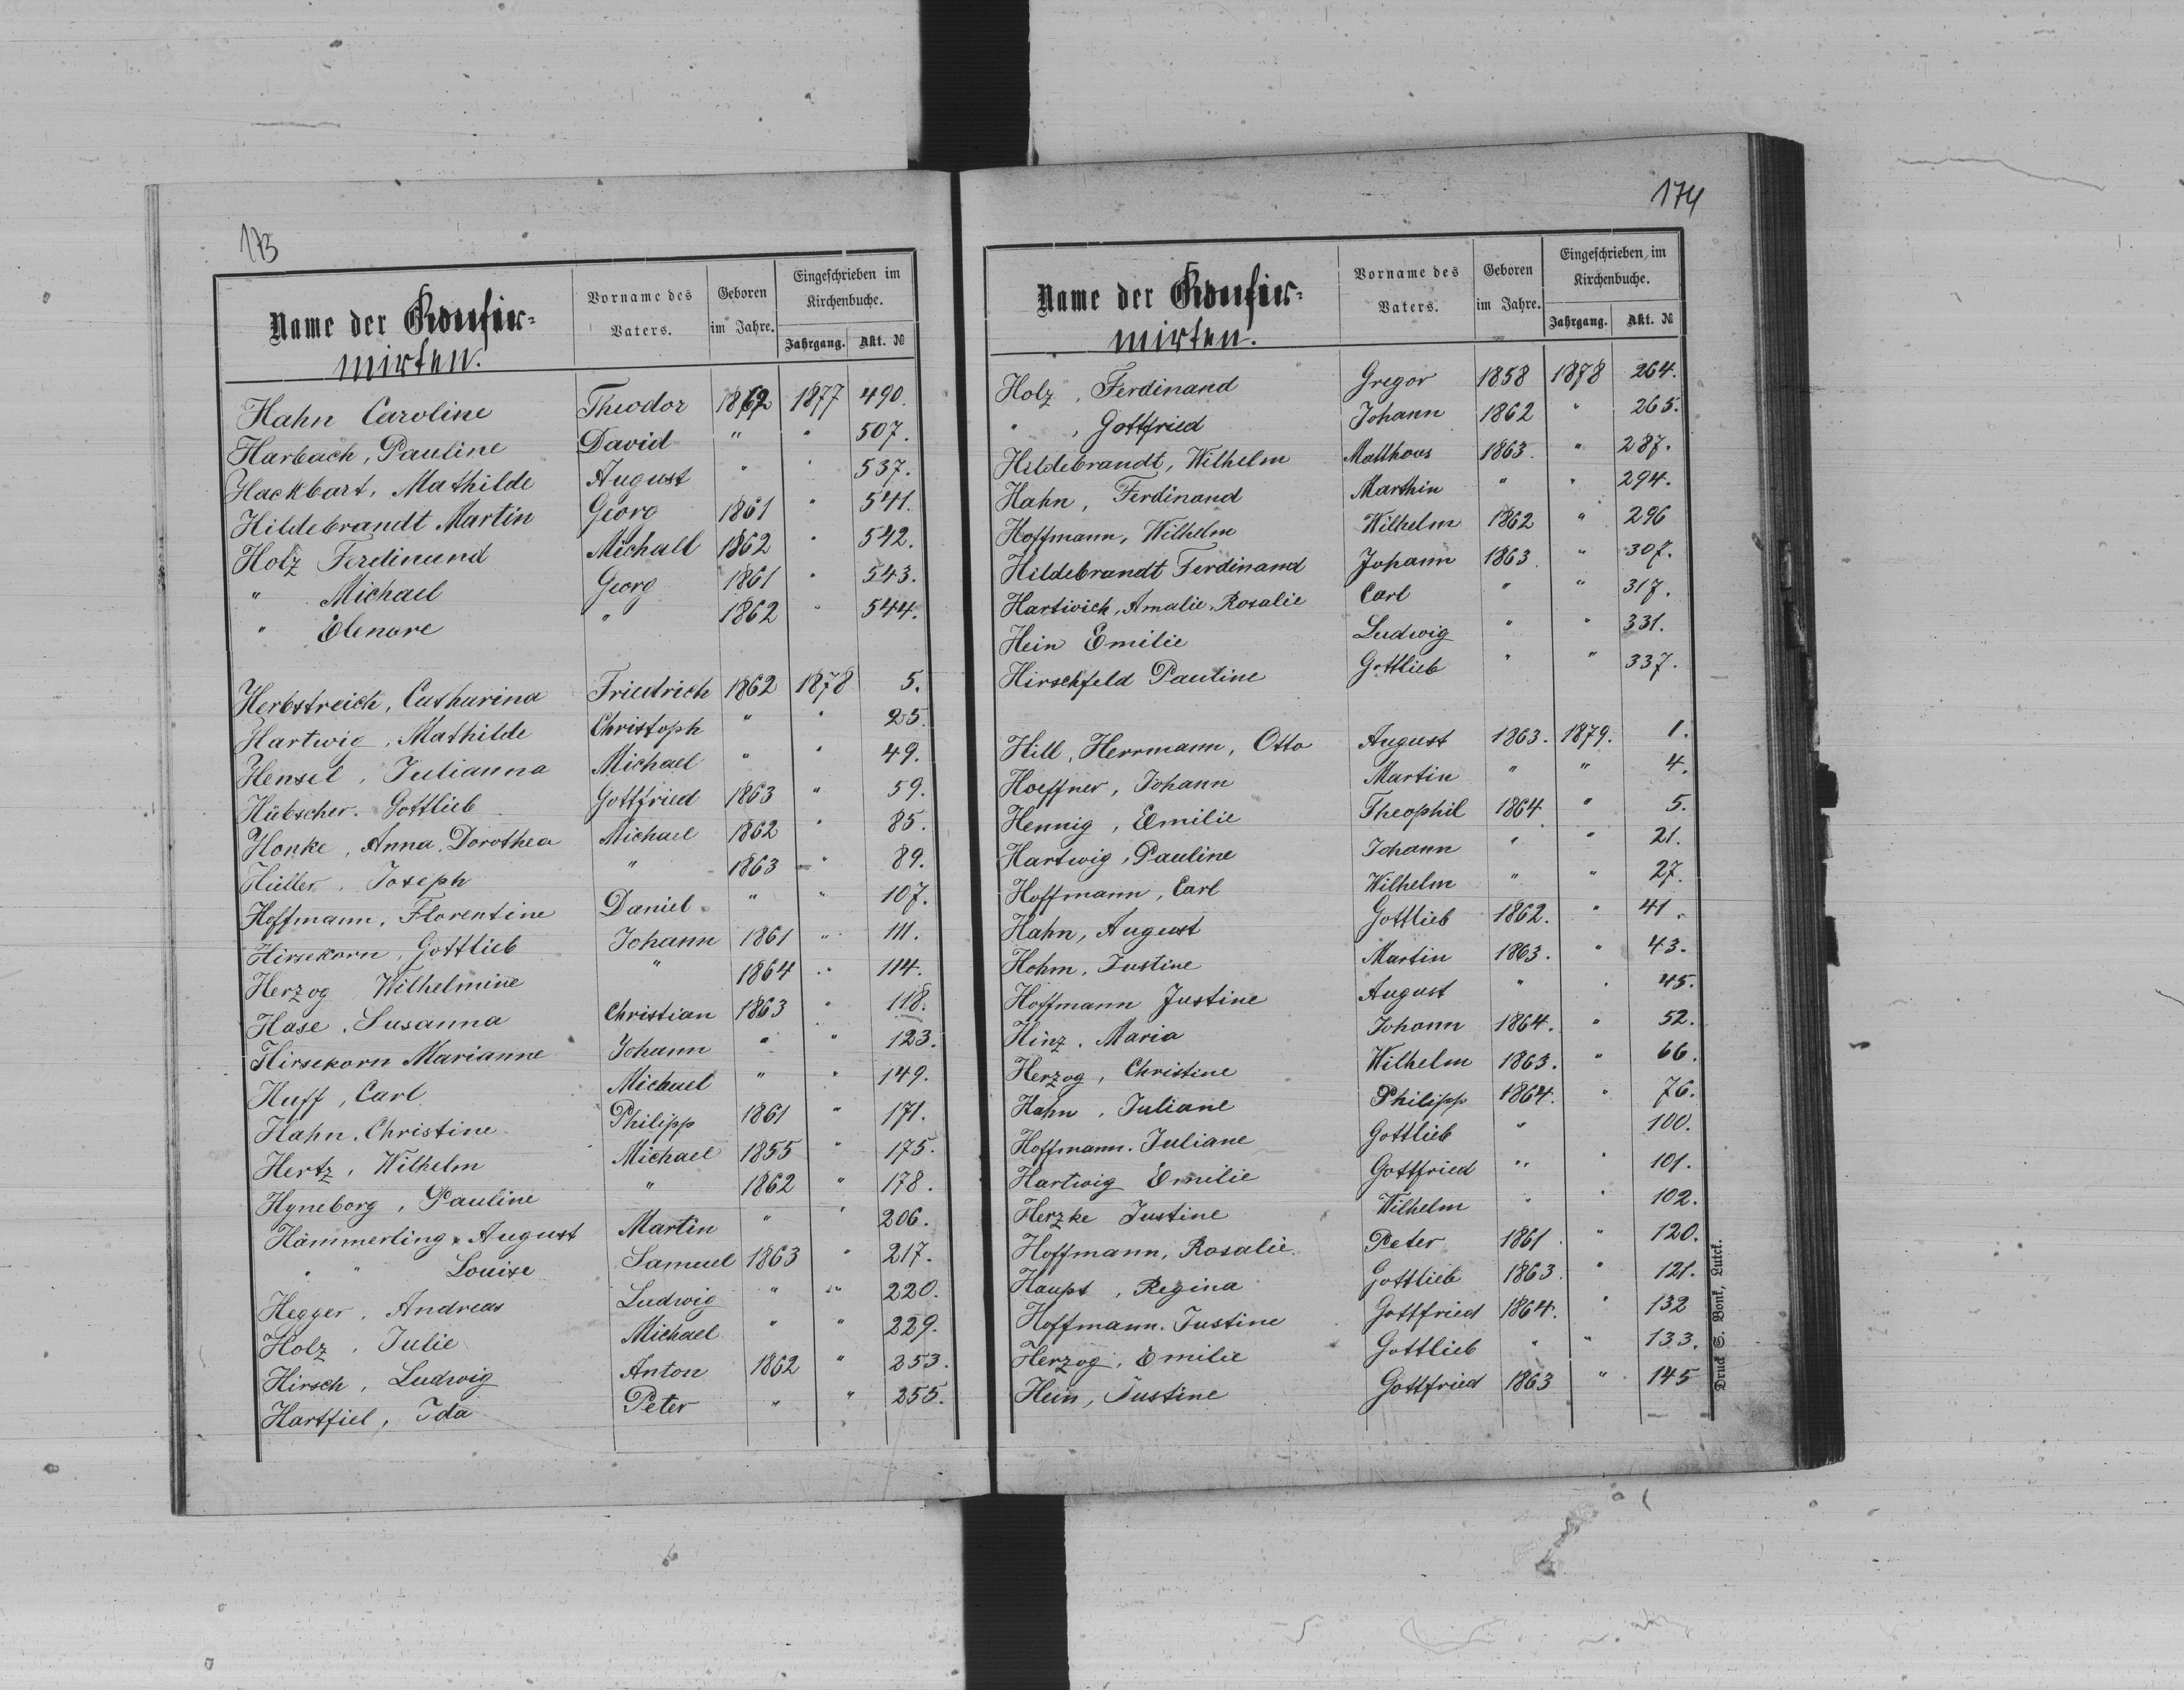 173
Name der Konfir=
mirten.
Vorname des
Vaters.
Geboren
im Jahre.
Eingeschrieben im
Kirchenbuche.
Jahrgang. Akt. №
Hahn Caroline Theodor 1862 1877 490.
Harbach, Pauline David " " 507.
Hackbart, Mathilde August " " 537.
Hildebrandt Martin Georg 1861 " 541.
Holz Ferdinand Michall 1862 " 542.
" Michael Georg 1861 " 543.
" Elenore " 1862 " 544.
Herbstreich, Catharina Friedrich 1862 1878 5.
Hartwig, Mathilde Christoph " " 25.
Hensel, Julianna Michael " " 49.
Hübscher. Gottlieb Gottfried 1863 " 59.
Honke, Anna, Dorothea Michael 1862 " 85.
Hüller, Joseph " 1863 " 89.
Hoffmann, Florentine Daniel " " 107.
Hirsekorn, Gottlieb Johann 1861 " 111.
Herzog Wilhelmine " 1864 " 114.
Hase, Susanna Christian 1863 " 118.
Hirsekorn Marianne Johann " " 123.
Huff, Carl Michael " " 149.
Hahn, Christine Philipp 1861 " 171.
Hertz, Wilhelm Michael 1855 " 175.
Hyneborg, Pauline " 1862 " 178.
Hämmerling, August Martin " " 206.
" " Louise Samuel 1863 " 217.
Hegger, Andreas Ludwig " " 220.
Holz, Julie Michael " " 229.
Hirsch, Ludwig Anton 1862 " 253.
Hartfiel, Ida Peter " " 255.
174
Name der Konfir=
mirten.
Vorname des
Vaters.
Geboren
im Jahre.
Eingeschrieben im
Kirchenbuche.
Jahrgang. Akt. №
Holz, Ferdinand Gregor 1858 1878 264.
", Gottfried Johann 1862 " 265.
Hildebrandt, Wilhelm 1863. " 287.
Hahn, Ferdinand Marthin " " 294.
Hoffmann, Wilhelm Wilhelm 1862 " 296
Hildebrandt Ferdinand Johann 1863 " 307.
Hartwich, Amalie, Rosalie Carl " " 317.
Hein Emilie Ludwig " " 331.
Hirschfeld Pauline Gottlieb " " 337.
Hill, Herrmann, Otto August 1863. 1879. 1.
Hoeffner, Johann Martin " " 4.
Hennig, Emilie Theophil 1864 " 5.
Hartwig, Pauline Johann " " 21.
Hoffmann, Carl Wilhelm " " 27.
Hahn, August Gottlieb 1862. " 41.
Hohm, Justine Martin 1863. " 43.
Hoffmann Justine August " " 45.
Hinz. Maria Johann 1864. " 52.
Herzog, Christine Wilhelm 1863. " 66.
Hahn, Juliane Philipp 1864. " 76.
Hoffmann. Juliane Gottlieb " 100.
Hartwig Emilie Gottfried " " 101.
Herzke Justine Wilhelm " " 102.
Hoffmann, Rosalie Peter 1861 " 120.
Haupt, Regina Gottlieb 1863. " 121.
Hoffmann. Justine Gottfried 1864. " 132
Herzog, Emilie Gottlieb " " 133.
Hein, Justine Gottfried 1863 " 145
Druck S. Bonk, Lutck.